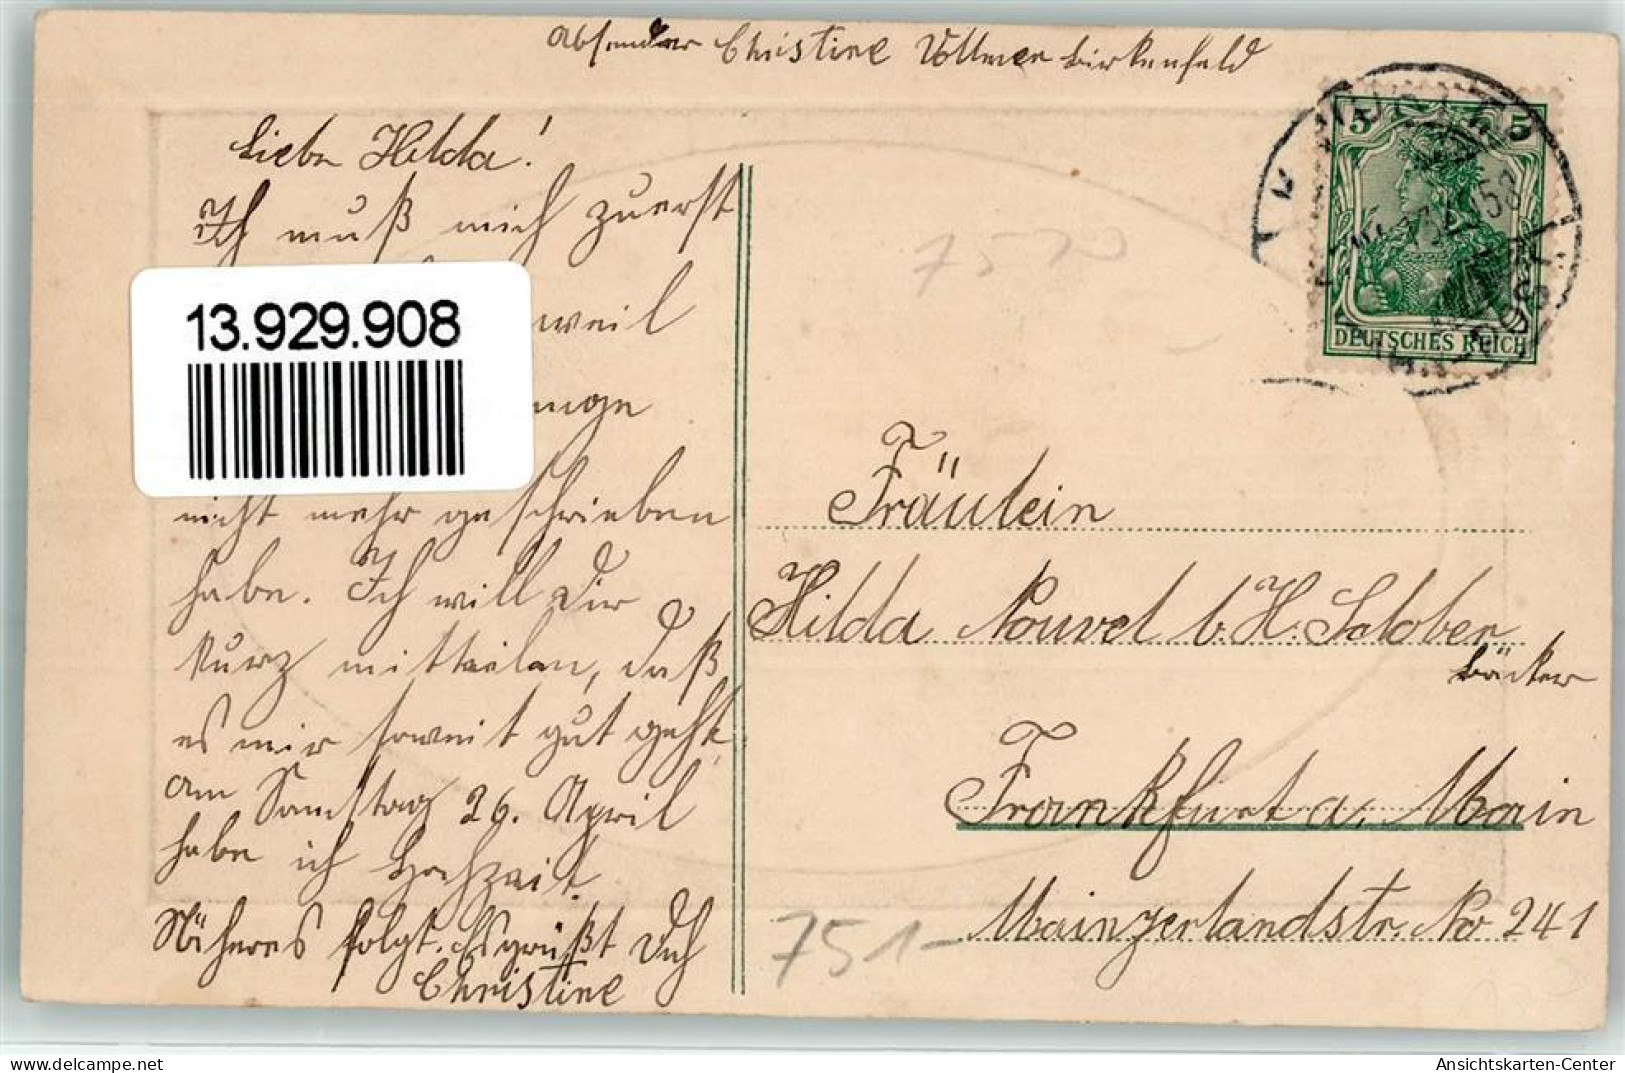 Absender Christine Vollmer Birkenfeld
Liebe Hilda!
Ich muß mich zuerst
weil
nicht mehr geschrieben
habe. Ich will Dir
kurz mitteilen, daß
es mir soweit gut geht.
Am Samstag 26. April
habe ich Hochzeit.
Näheres folgt. Es grüßt Dich
Christine
13.929.908
5 5
DEUTSCHES REICH
Fräulein
Hilda Nouvel b. H. Schober
Bäcker
Frankfurt a. Main
Mainzerlandstr. No 241
751-
Ansichtskarten-Center